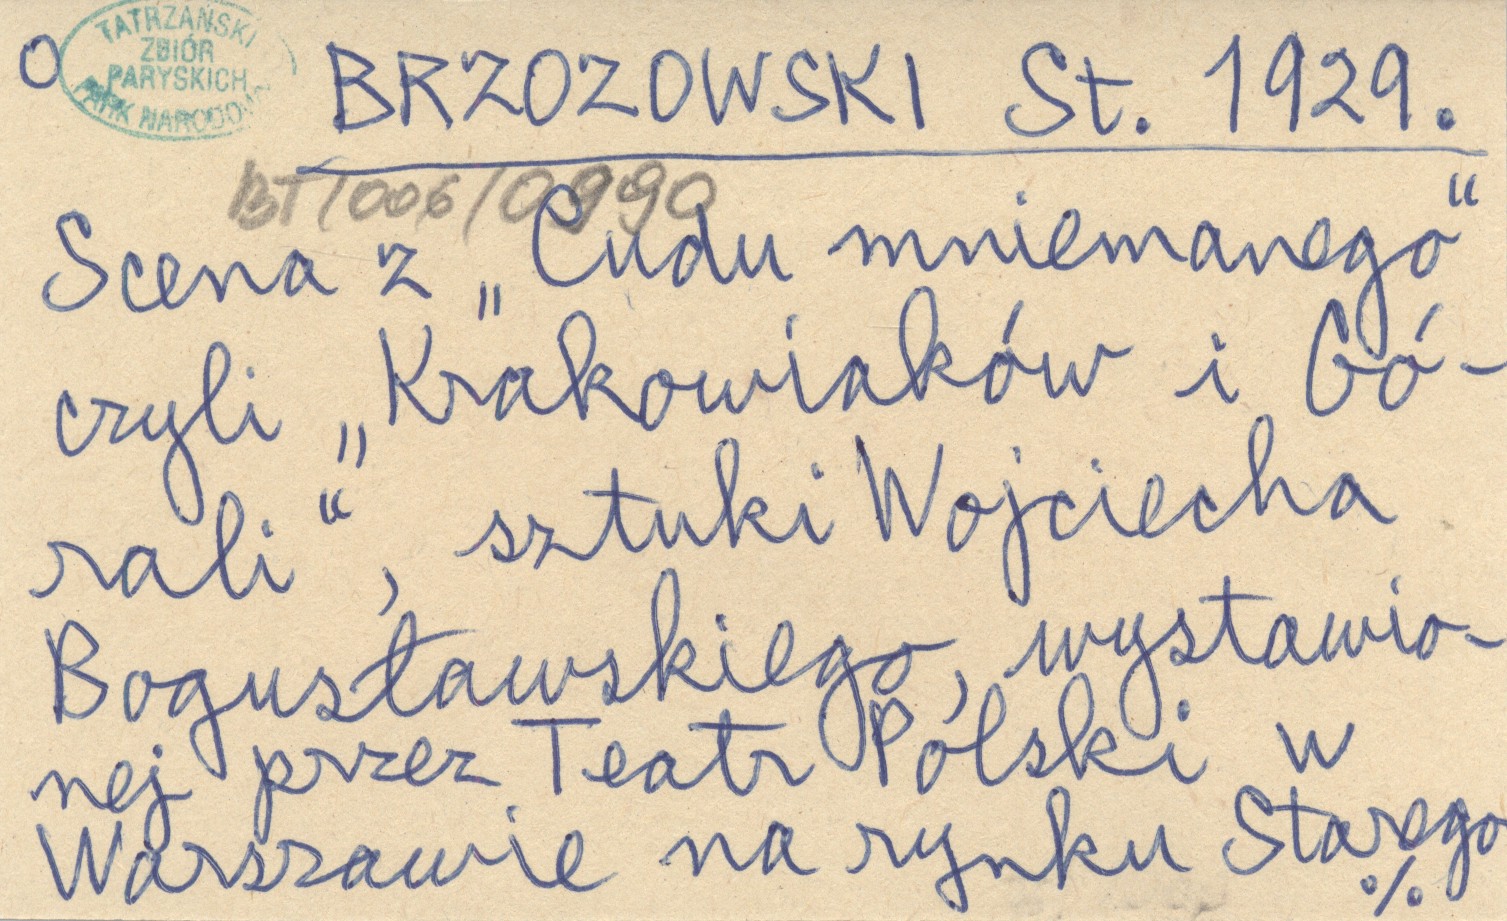 O
TATRZAŃSKI
ZBIÓR
PARYSKICH
PARK NARODOWY
BRZOZOWSKI St. 1929.
BT/006/0990
Scena z „Cudu mniemanego“
czyli „Krakowiaków i Gó-
rali“, sztuki Wojciecha
Bogusławskiego, wystawio-
nej przez Teatr Polski w
Warszawie na rynku Starego
%